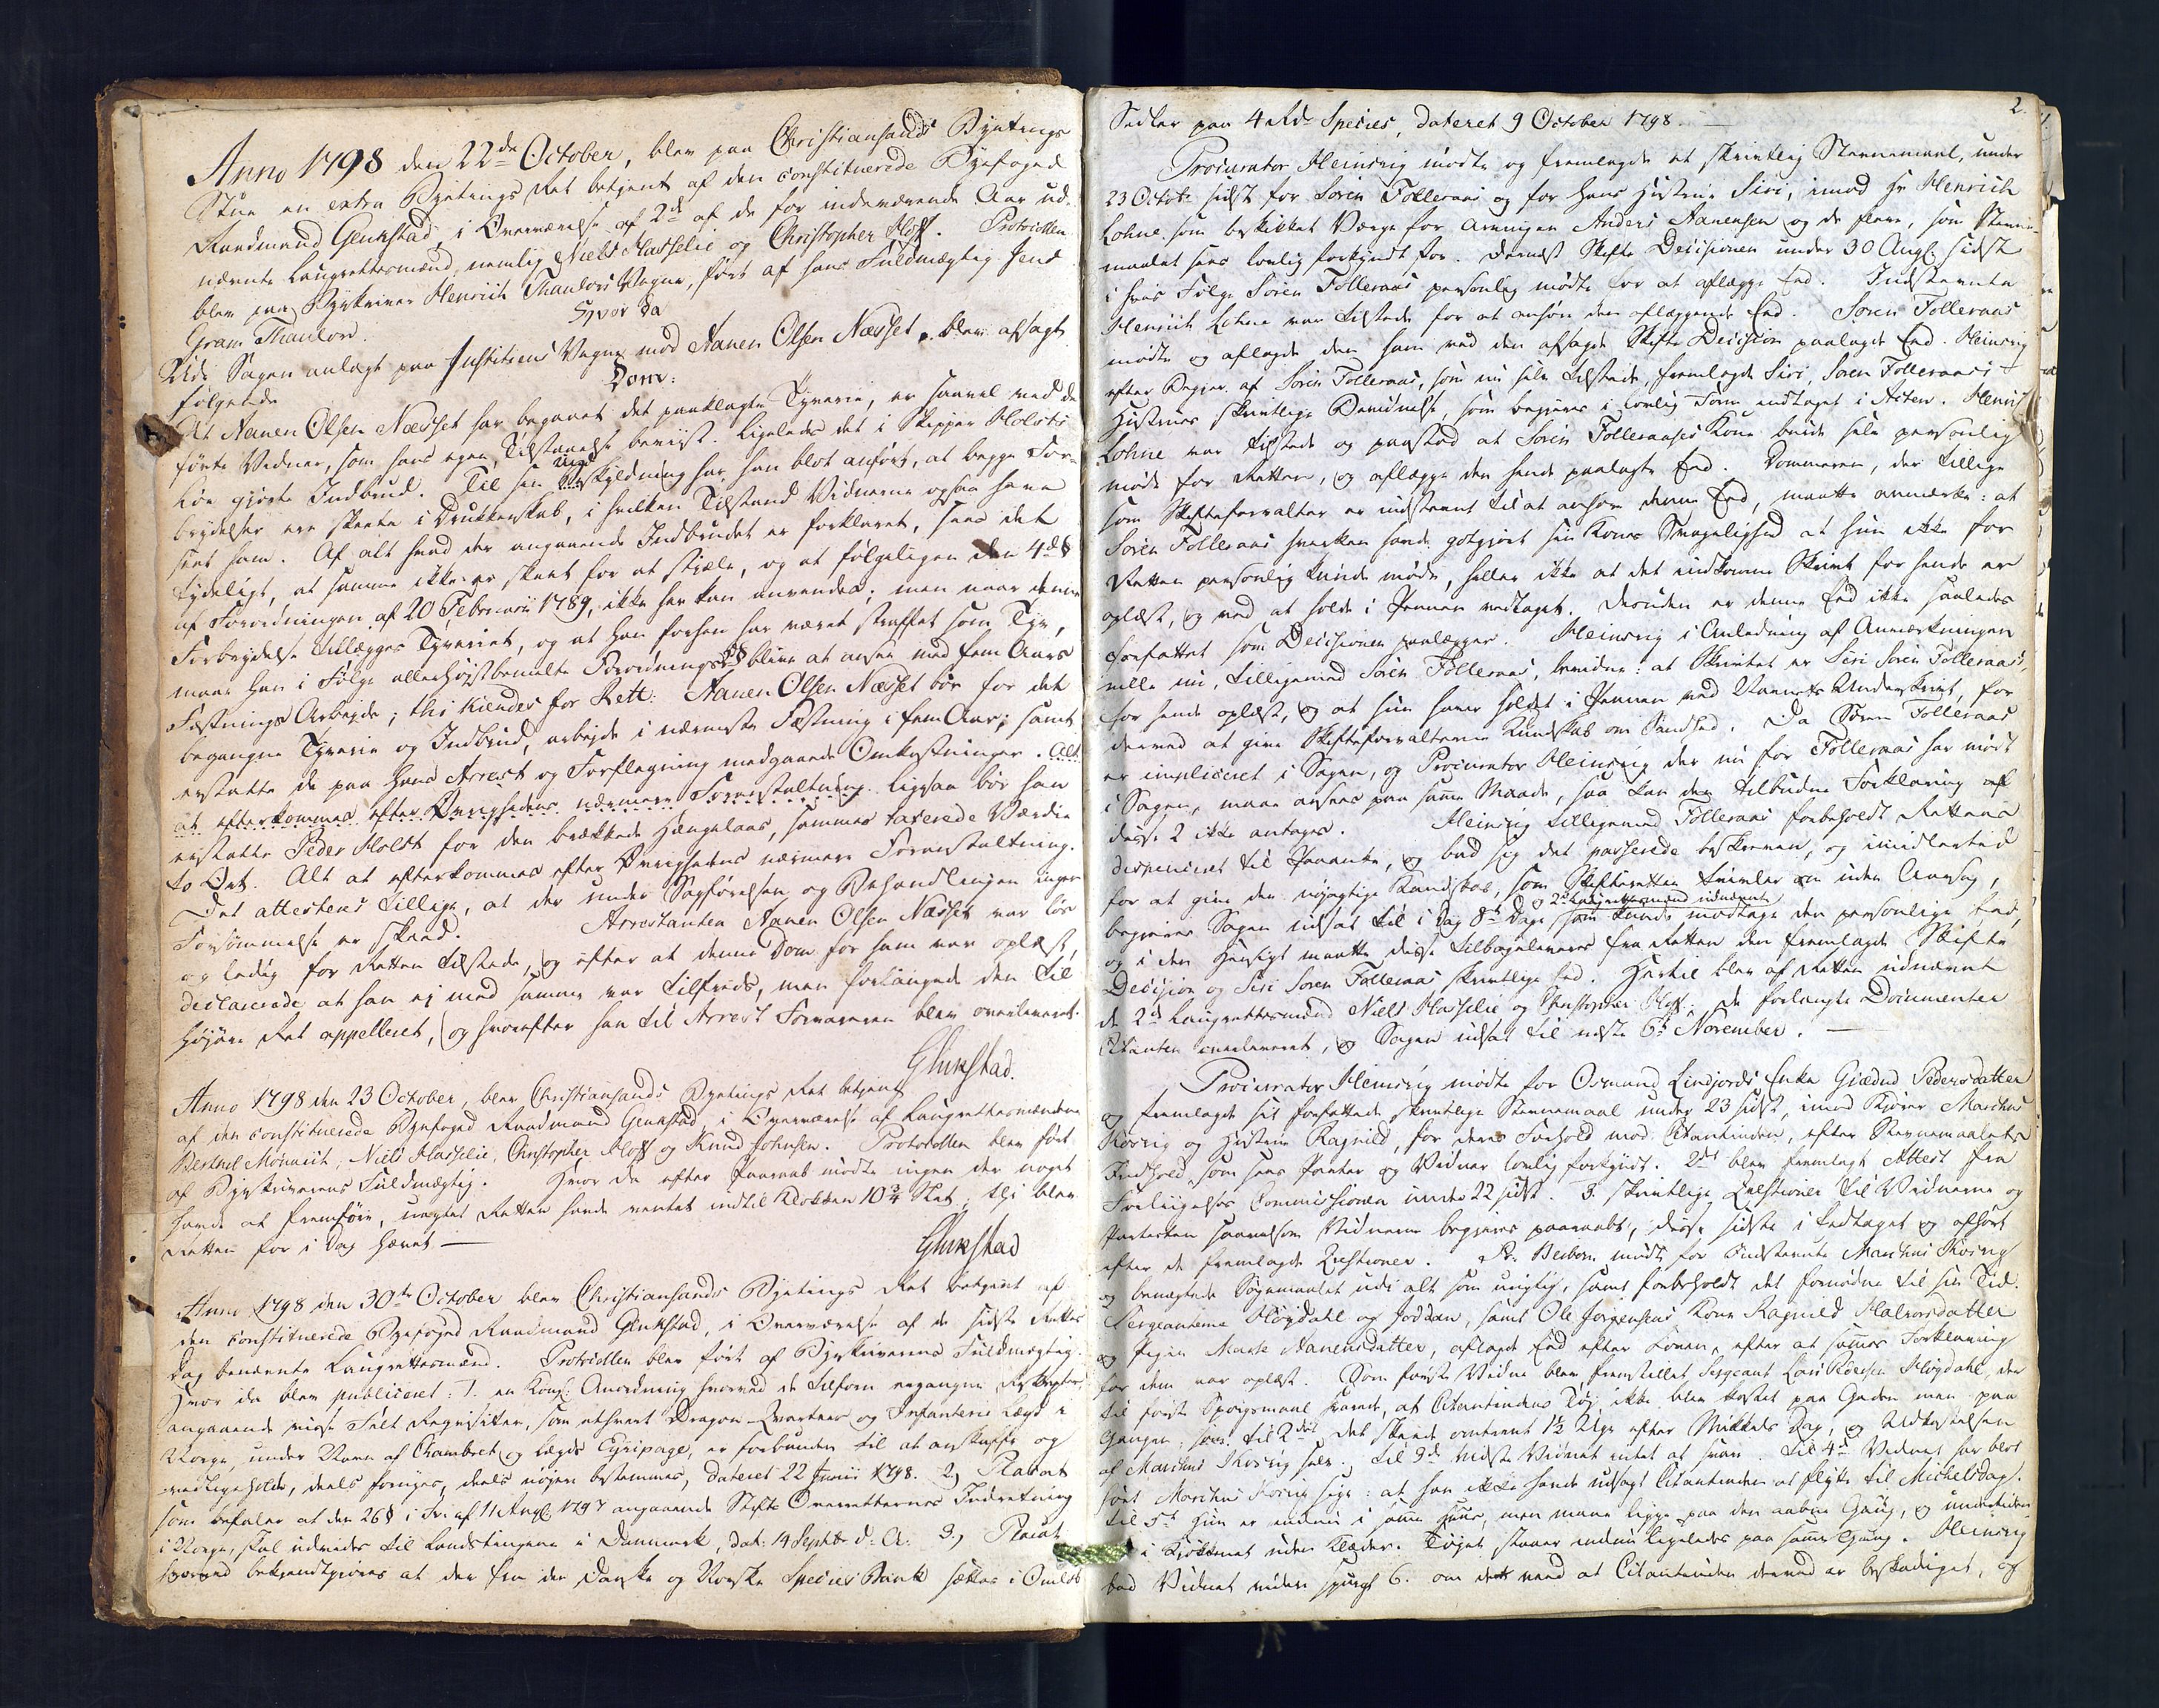 Anno 1798 den 22de October, blev paa Christiansands Byetings
Stue en extra Byetings Ret betjent af den constituerede Byefoged
Raadmand Glükstad, i Overværelse af 2de af de for indeværende Aar ud-
nævnte Laugrettesmænd, nemlig Niels Hasselie og Christopher Hoff. Protocollen
blev paa Byskriver Henrich Thaulovs Vegne, ført af hans Fuldmægtig Jens
Gram Thaulow.
Hvor da
Udi Sagen anlagt paa Justitiens Vegne mod Aanen Olsen Næsset, blev afsagt
følgende
Dom:
At Aanen Olsen Næsset har begaaet det paaklagte Tyverie, er saavel ved de
førte Vidner, som hans egen Tilstaaelse beviist. Ligeledes det i Skipper Holsts
Boe gjorte Indbrud. Til sin Undskyldning har han blot anført, at begge For-
brydelser ere skeete i Drukkenskab, i hvilken Tilstand Vidnerne ogsaa have
seet ham. Af alt hvad der angaaende Indbrudet er forklaret, sees det
tydeligt, at samme ikke er skeet for at stjæle, og at følgeligen den 4de §
af Forordningen af 20 Februarii 1789, ikke her kan anvendes; men naar denne
Forbrydelse tillægges Tyveriet, og at han forhen har været straffet som Tyv,
maae han i Følge allerhøjstbemelte Forordnings § blive at ansee med fem Aars
Fæstnings Arbejde; thi kiendes for Rett: Aanen Olsen Næsset bør for det
begangne Tyverie og Indbrud, arbejde i nærmeste Fæstning i fem Aar, samt
erstatte de paa hans Arrest og Forflegning medgaaede Omkostninger. Alt
at efterkommes efter Øvrighedens nærmere Foranstaltning. Ligesaa bør han
erstatte Peder Holst for den brækkede Hængelaas, sammes taxerede Værdie
to Ort. Alt at efterkommes efter Øvrighedens nærmere Foranstaltning.
Det attesteres tillige, at der under Sagførelsen og Behandlingen ingen
Forsømmelse er skeed. Arrestanten Aanen Olsen Næsset var løs
og ledig for Retten tilstede, og efter at denne Dom for ham var oplæst,
declarerede at han ej med samme var tilfreds, men forlangede den til
højere Ret appelleret, og hvorefter han til Arrest Forvareren blev overleveret.
Glükstad.
Anno 1798 den 23 October, blev Christiansands Byetings Ret betjent
af den constituerede Byefoged Raadmand Glükstad, i Overværelse af Laugrettesmændene
Berthel Mørnick, Niels Hasselie, Christopher Hoff og Knud Johnsen. Protocollen blev ført
af Byskriverens Fuldmægtig. Hvor da efter Paaraab mødte ingen der noget
havde at fremføre, uagtet Retten havde ventet indtil Klokken 10¾ Slet; thi blev
Retten for i Dag hævet —
Glükstad
Anno 1798 den 30te October blev Christiansands Byetings Ret betjent af
den constituerede Byefoged Raadmand Glükstad, i Overværelse af de sidste Rettes
Dag benævnte Laugrettesmænd. Protocollen blev ført af Byskriverens Fuldmægtig.
Hvor da blev publiceret: 1. en Kongl: Anordning hvorved de tilforn ergangne Rescripter
angaaende visse Felt Requisiter, som ethvert Dragon-Qvarteer og Infanterie Lægd i
Norge, under Navn af Chambret og Lægds Eqvipage, er forbunden til at anskaffe og
vedligeholde, deels fornyes, deels nøjere bestemmes, dateret 22 Junii 1798. 2) Placat
som befaler at den 26 § i Fr. af 11 Aug. 1797 angaaende Stifts Overretternes Indretning
i Norge, skal udvides til Landstingene i Danmark, dat: 14 Septbr d: A. 3) Placat
hvorved bekjendtgjøres at der fra den Danske og Norske Species Bank sættes i Omløb
2.
Sedler paa 4 Rd. Species, dateret 9 October 1798. —
Procurator Heinrig mødte og fremlagde et skrivtlig Stevnemaal, under
23 Octobr. sidst for Søren Tolleraas og for hans Hustrue Siri, imod Hr Henrich
Lohne som beskikket Værge for Arvingen Anders Aanensen og de flere, som Stevne-
maalet sees lovlig forkyndt for. Dernest Skifte Decisionen under 30 Aug. sidst
i hvis Følge Søren Tolleraas personlig mødte for at aflægge Eed. Indstevnte
Henrich Lohne var tilstede for at anhøre den aflæggende Eed. Søren Tolleraas
mødte og aflagde den ham ved den afsagde Skifte Decision paalagde Eed. Heinrig
efter Begjær af Søren Tolleraas, som nu selv tilstede, fremlagde Siri, Søren Tolleraas's
Hustrues skrivtlige Benægtelse, som begjæres i lovlig Form indtaget i Acten. Henrich
Lohne var tilstede og paastod at Søren Tolleraases Kone burde selv personlig
møde for Retten, og aflægge den hende paalagte Eed. Dommeren, der tillige
som Skifteforvalter er indstevnt til at anhøre denne Eed, maatte anmærke: at
Søren Tolleraas hverken havde godtgjort sin Kones Svagelighed at hun ikke for
Retten personlig kunde møde, heller ikke at det indkomne Skrivt for hende er
oplæst, og ved at holde i Pennen vedtaget. Desuden er denne Eed ikke saaledes
forfattet som Decisionen paalægger. Heinrig i Anledning af Anmærkningen
vilde nu, tilligemed Søren Tolleraas, bevidne: at Skrivtet er Siri Søren Tolleraas's,
for hende oplæst, og at hun haver holdt i Pennen ved Navnets Underskrivt, for
derved at give Skifteforvalteren Kundskab om Sandhed. Da Søren Tolleraas
er impliceret i Sagen, og Procurator Heinrig der nu for Tolleraas har mødt
i Sagen, maae ansees paa samme Maade, saa kan den tilbudne Forklaring af
disse 2 ikke antages. Heinrig tilligemed Tolleraas forbeholdt Rettens
for at give den nøjagtige Kundskab, som Skifteretten tvivler om uden Aarsag,
begjæres Sagen udsat til i Dag 8te Dage 2de Laugrettesmænd udnævnte som kunde modtage den personlige Eed,
og i den Hensigt maatte disse tilbageleveres fra Retten den fremlagde Skifte
Decision og Siri Søren Tolleraas skrivtlige Eed. Hertil blev af Retten udnævnt
de 2de Laugrettesmænd Niels Hasselie og Christopher Hoff; de forlangte Documenter
Citanten overleveret, og Sagen udsat til næste 6te November. —
Procurator Heinrig mødte for Osmund Lindjords Enke Giædrud Pedersdatter
og fremlagde sit forfattede skrivtlige Stevnemaal under 23 sidst, imod Kjører Marchus
Kosvig og Hustrue Ragnild, for deres Forhold mod Citantinden, efter Stevnemaalets
Indhold, som sees Parter og Vidner lovlig forkyndt. 2det blev fremlagt Attest fra
Forligelses Commissionen under 22 sidst. 3. skrivtlige Qvæstioner til Vidnerne og
Parterne saavelsom Vidnerne begjæres paaraabt, disse sidste i Eedtaget og afhørt
efter de fremlagde Qvestioner. Pr. Beiboe mødte for Indstevnte Marchus Kosvig
og benægtede Søgemaalet udi alt som urigtig, samt forbeholdt det fornødne til sin Tid.
Sergeanterne Høgdahl og Joddan, samt Ole Jørgensens Kone Ragnild Halvorsdatter
og Pigen Marte Aanensdatter, aflagde Eed efter Loven, efter at sammes Forklaring
for dem var oplæst. Som første Vidne blev fremstillet Sergeant Lars Høgdahl, der
til første Spørgsmaal svarede, at Citantindens Tøj ikke blev kastet paa Gaden men paa
Gangen; til 2det Det skeede omtrent 1½ Uge efter Mikkels Dag, og Udkastelsen
af Marchus Kosvig selv. til 3de vidste Vidnet intet at svare. til 4de Vidnet har blot
hørt Marchus Kosvig sige: at han ikke havde udsagt Citantinden at flytte til Michelsdag.
til 5te Hun er endnu i samme Huus, men maae ligge paa den aabne Gang, og undertiden
i Kjøkkenet uden Klæder. Tøjet staaer endnu ligeledes paa samme Gang. Heinrig
bad Vidnet videre spurgt 6. om dette veed at Citantinden derved er beskadiget, og